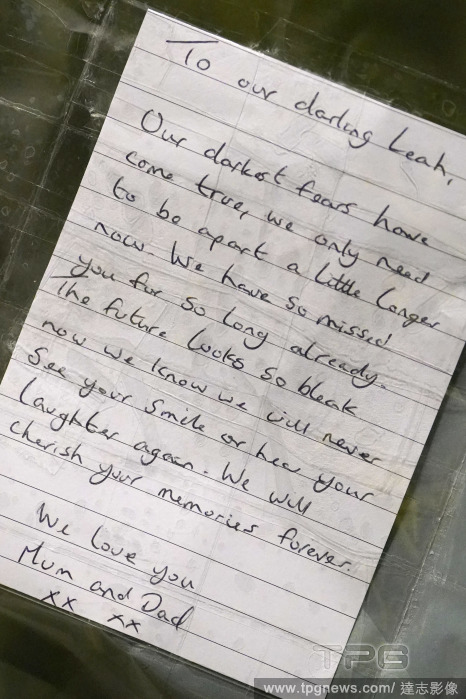 To our darling Leah,
Our darkest fears have
come true, we only need
to be apart a little longer
now. We have so missed
you for so long already.
The future looks so bleak
now we know we will never
see your smile or hear your
laughter again. We will
cherish your memories forever.
We love you
Mum and Dad
xx xx
TPG
www.tpgnews.com/ 達志影像